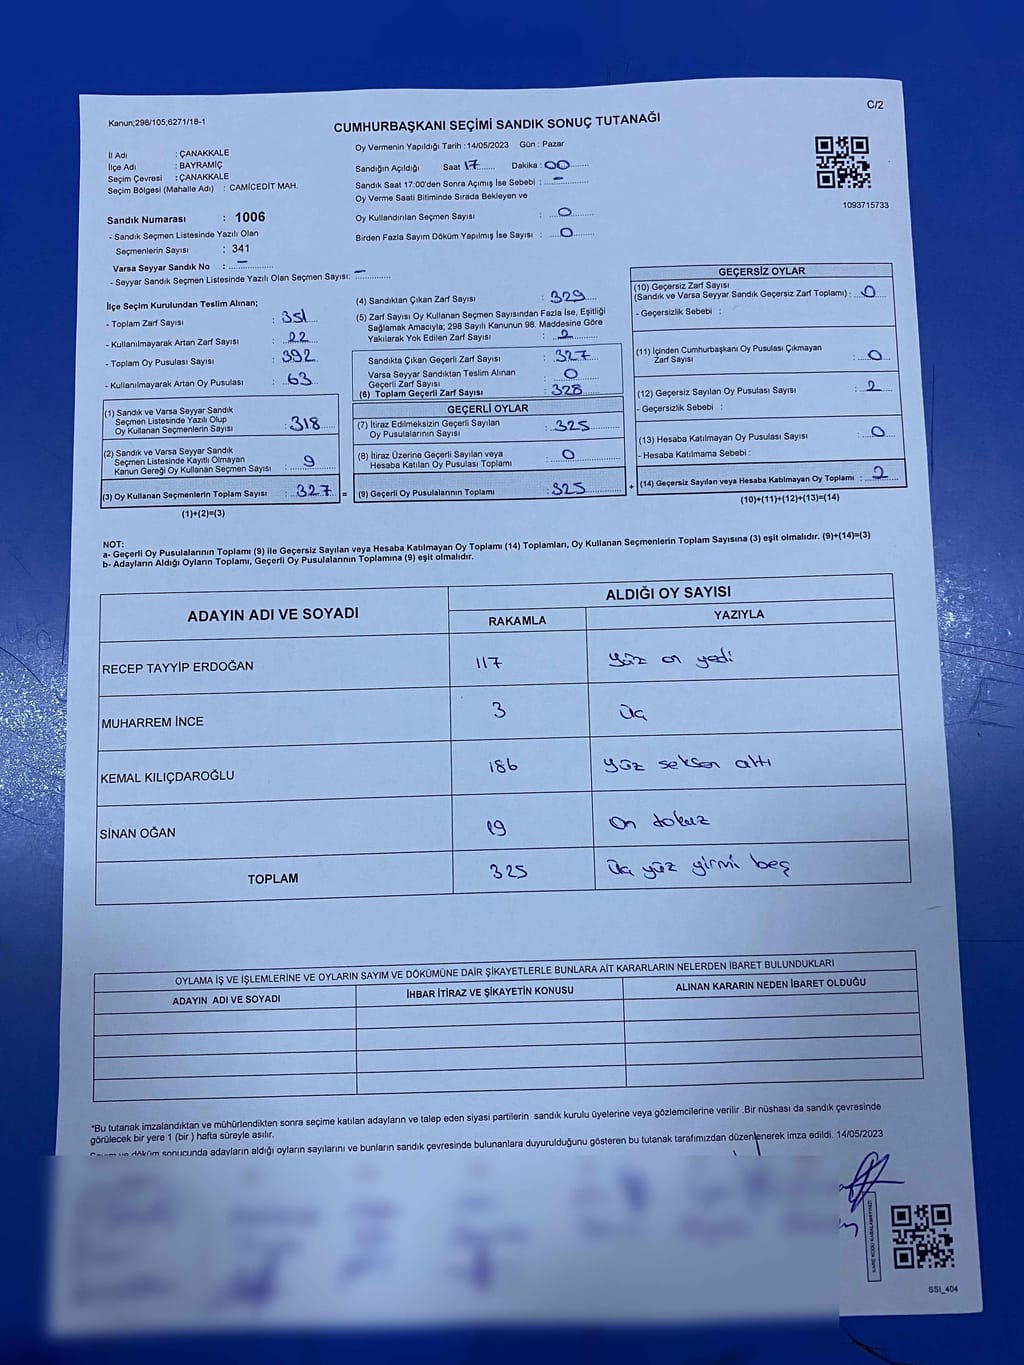 Kanun;298/105;6271/18-1
C/2
CUMHURBAŞKANI SEÇİMİ SANDIK SONUÇ TUTANAĞI
İl Adı : ÇANAKKALE
İlçe Adı : BAYRAMİÇ
Seçim Çevresi : ÇANAKKALE
Seçim Bölgesi (Mahalle Adı) : CAMİCEDİT MAH.
Sandık Numarası : 1006
- Sandık Seçmen Listesinde Yazılı Olan
Seçmenlerin Sayısı : 341
Varsa Seyyar Sandık No : -
- Seyyar Sandık Seçmen Listesinde Yazılı Olan Seçmen Sayısı: -
Oy Vermenin Yapıldığı Tarih :14/05/2023 Gün : Pazar
Sandığın Açıldığı Saat 17 Dakika : 00
Sandık Saat 17:00'den Sonra Açımış İse Sebebi : -
Oy Verme Saati Bitiminde Sırada Bekleyen ve
Oy Kullandırılan Seçmen Sayısı : 0
Birden Fazla Sayım Döküm Yapılmış İse Sayısı : 0
1093715733
İlçe Seçim Kurulundan Teslim Alınan;
- Toplam Zarf Sayısı : 351
- Kullanılmayarak Artan Zarf Sayısı : 22
- Toplam Oy Pusulası Sayısı : 392
- Kullanılmayarak Artan Oy Pusulası : 63
(1) Sandık ve Varsa Seyyar Sandık
Seçmen Listesinde Yazılı Olup
Oy Kullanan Seçmenlerin Sayısı : 318
(2) Sandık ve Varsa Seyyar Sandık
Seçmen Listesinde Kayıtlı Olmayan
Kanun Gereği Oy Kullanan Seçmen Sayısı : 9
(3) Oy Kullanan Seçmenlerin Toplam Sayısı : 327 =
(1)+(2)=(3)
(4) Sandıktan Çıkan Zarf Sayısı : 329
(5) Zarf Sayısı Oy Kullanan Seçmen Sayısından Fazla İse, Eşitliği
Sağlamak Amacıyla; 298 Sayılı Kanunun 98. Maddesine Göre
Yakılarak Yok Edilen Zarf Sayısı : 2
Sandıkta Çıkan Geçerli Zarf Sayısı : 327
Varsa Seyyar Sandıktan Teslim Alınan
Geçerli Zarf Sayısı : 0
(6) Toplam Geçerli Zarf Sayısı : 328
GEÇERLİ OYLAR
(7) İtiraz Edilmeksizin Geçerli Sayılan
Oy Pusulalarının Sayısı : 325
(8) İtiraz Üzerine Geçerli Sayılan veya
Hesaba Katılan Oy Pusulası Toplamı : 0
(9) Geçerli Oy Pusulalarının Toplamı : 325 +
GEÇERSİZ OYLAR
(10) Geçersiz Zarf Sayısı
(Sandık ve Varsa Seyyar Sandık Geçersiz Zarf Toplamı) : 0
- Geçersizlik Sebebi :
(11) İçinden Cumhurbaşkanı Oy Pusulası Çıkmayan
Zarf Sayısı : 0
(12) Geçersiz Sayılan Oy Pusulası Sayısı : 2
- Geçersizlik Sebebi :
(13) Hesaba Katılmayan Oy Pusulası Sayısı : 0
- Hesaba Katılmama Sebebi :
(14) Geçersiz Sayılan veya Hesaba Katılmayan Oy Toplamı : 2
(10)+(11)+(12)+(13)=(14)
NOT:
a- Geçerli Oy Pusulalarının Toplamı (9) ile Geçersiz Sayılan veya Hesaba Katılmayan Oy Toplamı (14) Toplamları, Oy Kullanan Seçmenlerin Toplam Sayısına (3) eşit olmalıdır. (9)+(14)=(3)
b- Adayların Aldığı Oyların Toplamı, Geçerli Oy Pusulalarının Toplamına (9) eşit olmalıdır.
ADAYIN ADI VE SOYADI
ALDIĞI OY SAYISI
RAKAMLA YAZIYLA
RECEP TAYYİP ERDOĞAN 117 yüz on yedi
MUHARREM İNCE 3 üç
KEMAL KILIÇDAROĞLU 186 yüz seksen altı
SİNAN OĞAN 19 on dokuz
TOPLAM 325 üç yüz yirmi beş
OYLAMA İŞ VE İŞLEMLERİNE VE OYLARIN SAYIM VE DÖKÜMÜNE DAİR ŞİKAYETLERLE BUNLARA AİT KARARLARIN NELERDEN İBARET BULUNDUKLARI
ADAYIN ADI VE SOYADI İHBAR İTİRAZ VE ŞİKAYETİN KONUSU ALINAN KARARIN NEDEN İBARET OLDUĞU
*Bu tutanak imzalandıktan ve mühürlendikten sonra seçime katılan adayların ve talep eden siyasi partilerin sandık kurulu üyelerine veya gözlemcilerine verilir .Bir nüshası da sandık çevresinde
görülecek bir yere 1 (bir ) hafta süreyle asılır.
Sayım ve döküm sonucunda adayların aldığı oyların sayılarını ve bunların sandık çevresinde bulunanlara duyurulduğunu gösteren bu tutanak tarafımızdan düzenlenerek imza edildi. 14/05/2023
KARE KODU KARALAMAYINIZ!
SSI_404